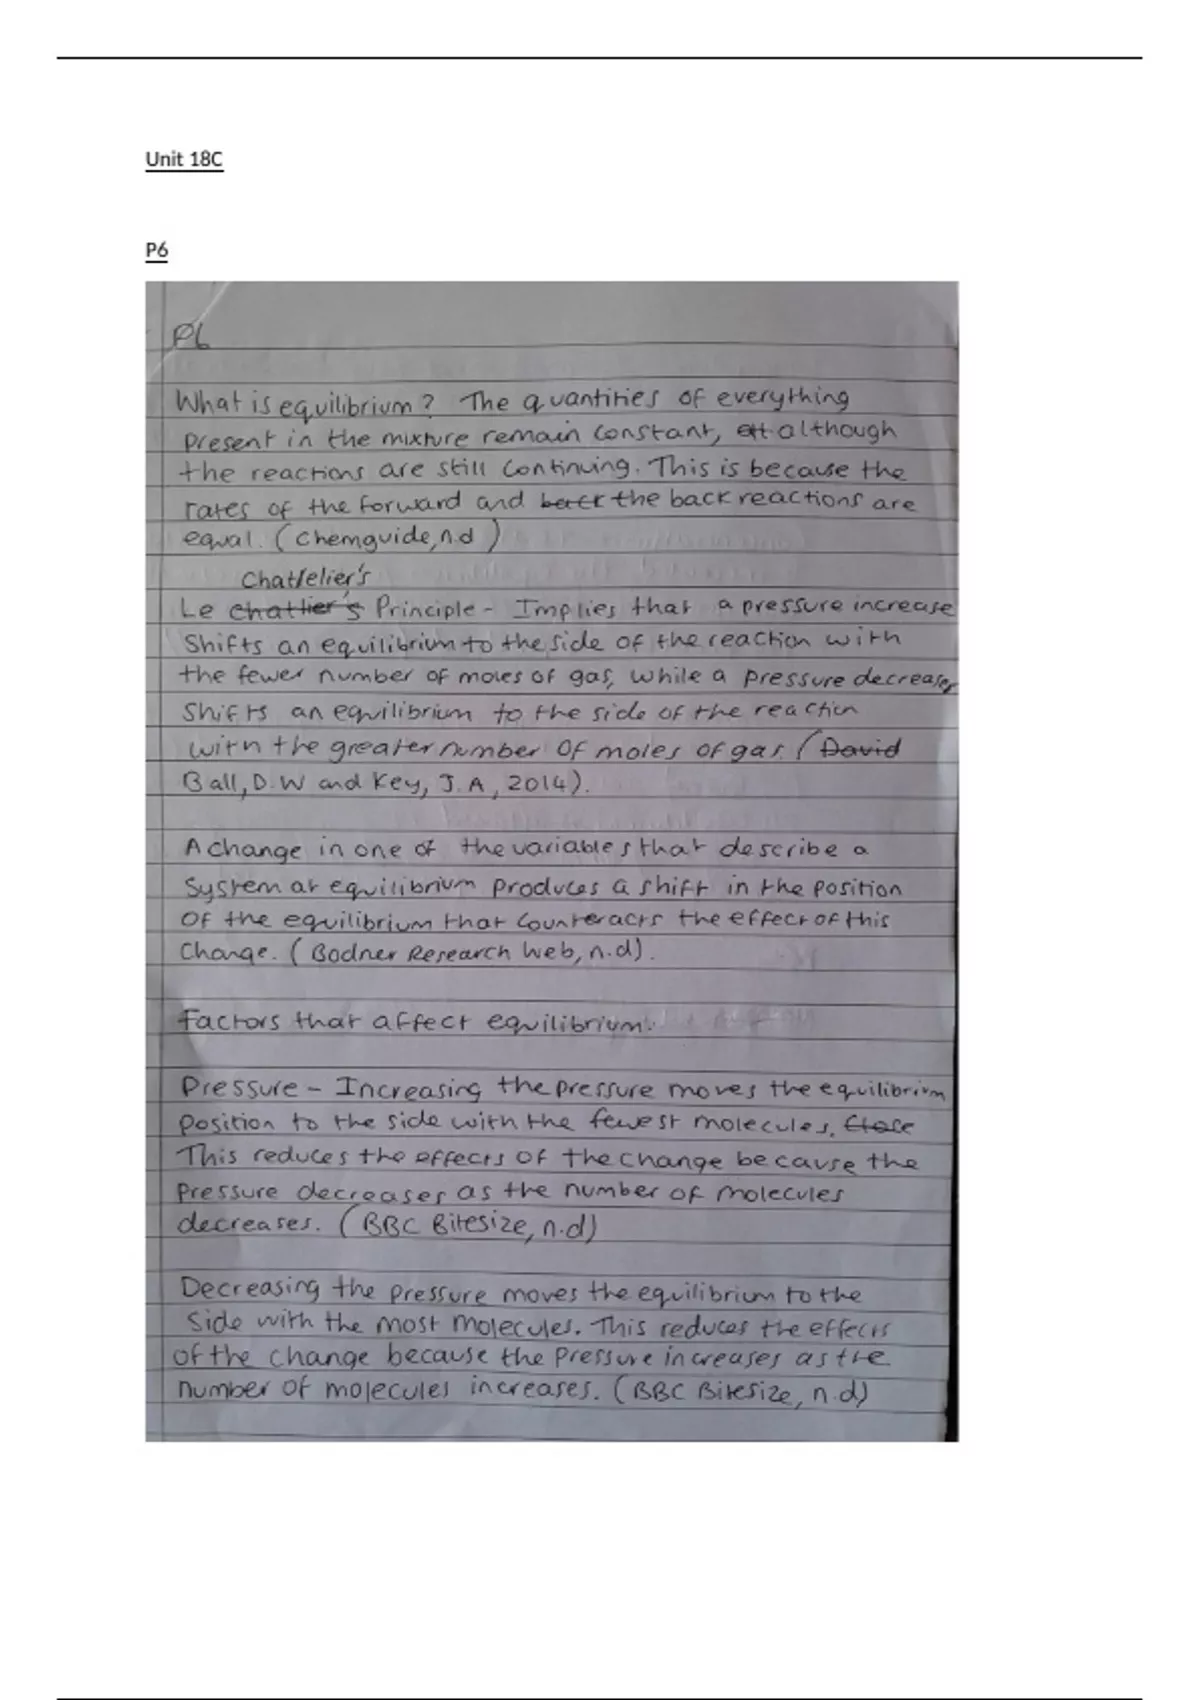 Unit 18C
P6
P6
What is equilibrium? The quantities of everything
present in the mixture remain constant, although
the reactions are still continuing. This is because the
rates of the forward and back the back reactions are
equal. (Chemguide, n.d)
Chatlelier's
Le chatlier's Principle - Implies that a pressure increase
shifts an equilibrium to the side of the reaction with
the fewer number of moles of gas, while a pressure decreases
shifts an equilibrium to the side of the reaction
with the greater number of moles of gas. (David
Ball, D.W and Key, J.A, 2014).
A change in one of the variables that describe a
system at equilibrium produces a shift in the position
of the equilibrium that counteracts the effect of this
change. (Bodner Research Web, n.d).
Factors that affect equilibrium:
Pressure - Increasing the pressure moves the equilibrium
position to the side with the fewest molecules.
This reduces the effects of the change because the
pressure decreases as the number of molecules
decreases. (BBC Bitesize, n.d)
Decreasing the pressure moves the equilibrium to the
side with the most molecules. This reduces the effects
of the change because the pressure increases as the
number of molecules increases. (BBC Bitesize, n.d)